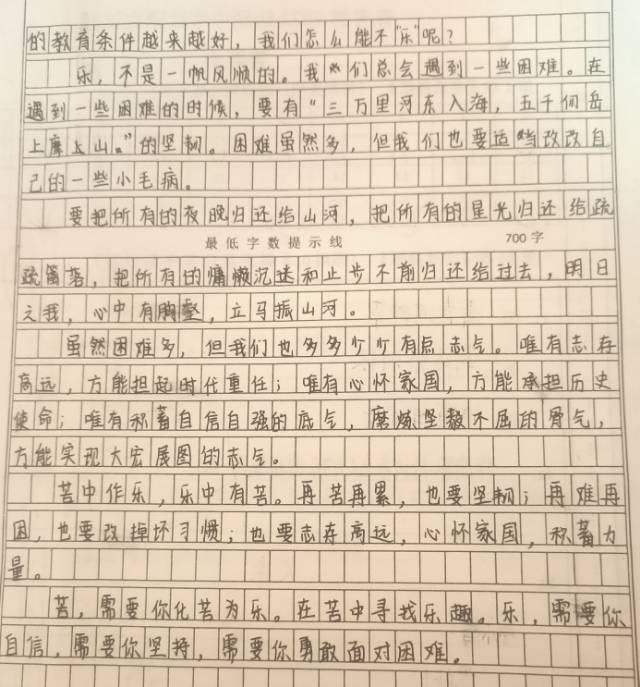 的教育条件越来越好，我们怎么能不"乐"呢？
乐，不是一帆风顺的。我们总会遇到一些困难。在
遇到一些困难的时候，要有"三万里河东入海，五千仞岳
上摩上山。"的坚韧。困难虽然多，但我们也要适当改改自
己的一些小毛病。
要把所有的夜晚归还给山河，把所有的星光归还给疏
最低字数提示线 700字
疏篱落，把所有的慵懒沉迷和止步不前归还给过去，明日
之我，心中有胸壑，立马振山河。
虽然困难多，但我们也多多少少有点志气。唯有志存
高远，方能担起时代重任；唯有心怀家国，方能承担历史
使命；唯有积蓄自信自强的底气，磨炼坚毅不屈的骨气，
方能实现大宏展图的志气。
苦中作乐，乐中有苦。再苦再累，也要坚韧；再难再
困，也要改掉坏习惯；也要志存高远，心怀家国，积蓄力
量。
苦，需要你化苦为乐。在苦中寻找乐趣。乐，需要你
自信，需要你坚持，需要你勇敢面对困难。